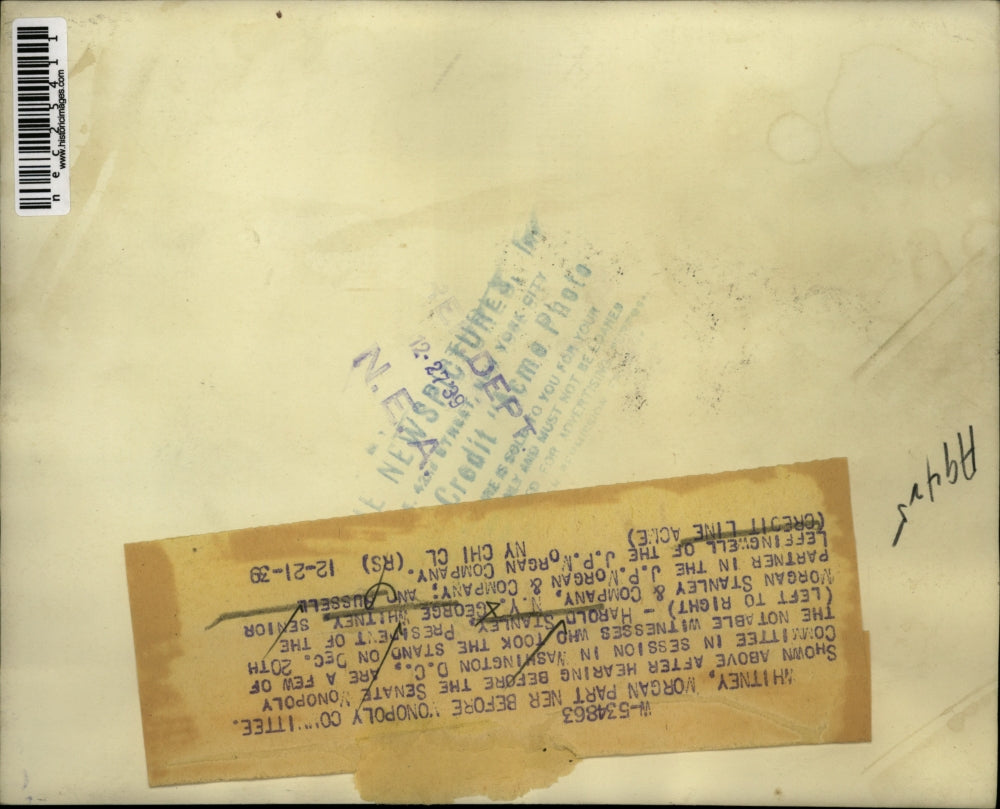 nec25411
www.historicimages.com
NEWSPICTURES, Inc
YORK CITY
Credit Acme Photo
TO YOU FOR YOUR
AND MUST NOT BE LOANED
FOR ADVERTISING
N. E. A.
12-27'39
DEPT.
W-534863
WHITNEY, MORGAN PART NER BEFORE MONOPOLY COMMITTEE.
SHOWN ABOVE AFTER HEARING BEFORE THE SENATE MONOPOLY
COMMITTEE IN SESSION IN WASHINGTON D.C., ARE A FEW OF
THE NOTABLE WITNESSES WHO TOOK THE STAND ON DEC. 20TH
(LEFT TO RIGHT) - HAROLD STANLEY, PRESIDENT OF THE
MORGAN STANLEY & COMPANY, N.Y. GEORGE WHITNEY SENIOR
PARTNER IN THE J.P.MORGAN & COMPANY; AND RUSSELL
LEFFINGWELL OF THE J.P.MORGAN COMPANY.
(CREDIT LINE ACME) NY CHI CL (RS) 12-21-39